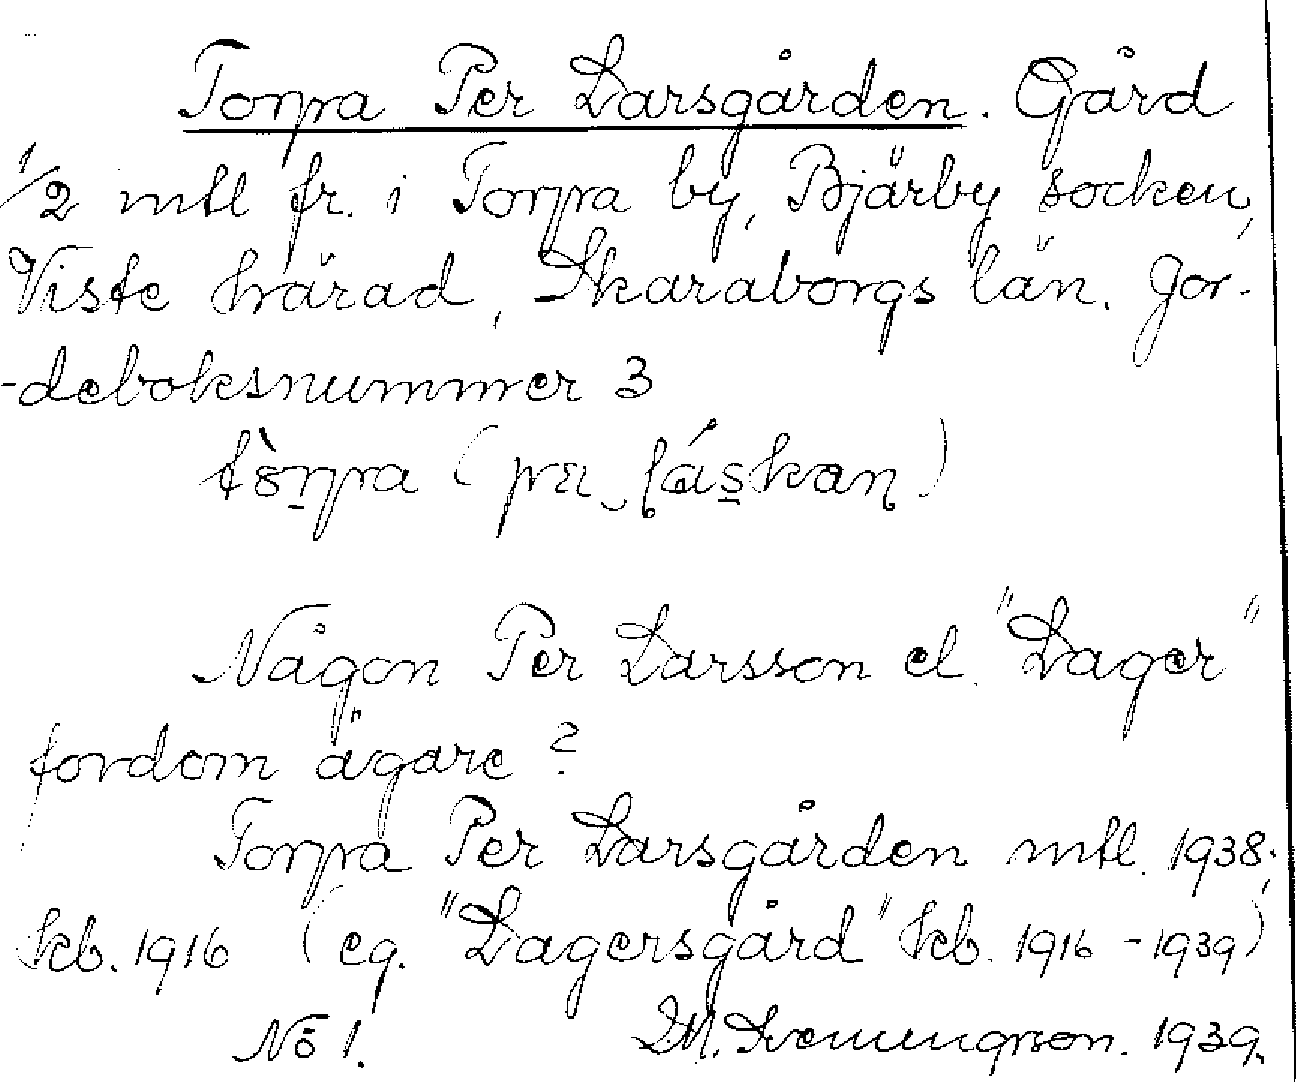 Torpa Per Larsgården. Gård
1/2 mtl fr. i Torpa by, Bjärby socken,
Viste härad, Skaraborgs län. Jor-
-deboksnummer 3
Någon Per Larsson el. "Lager"
fordom ägare?
Torpa Per Larsgården mtl. 1938;
kb. 1916 (eg. "Lagersgård" kb. 1916 - 1939)
No 1. 1939.